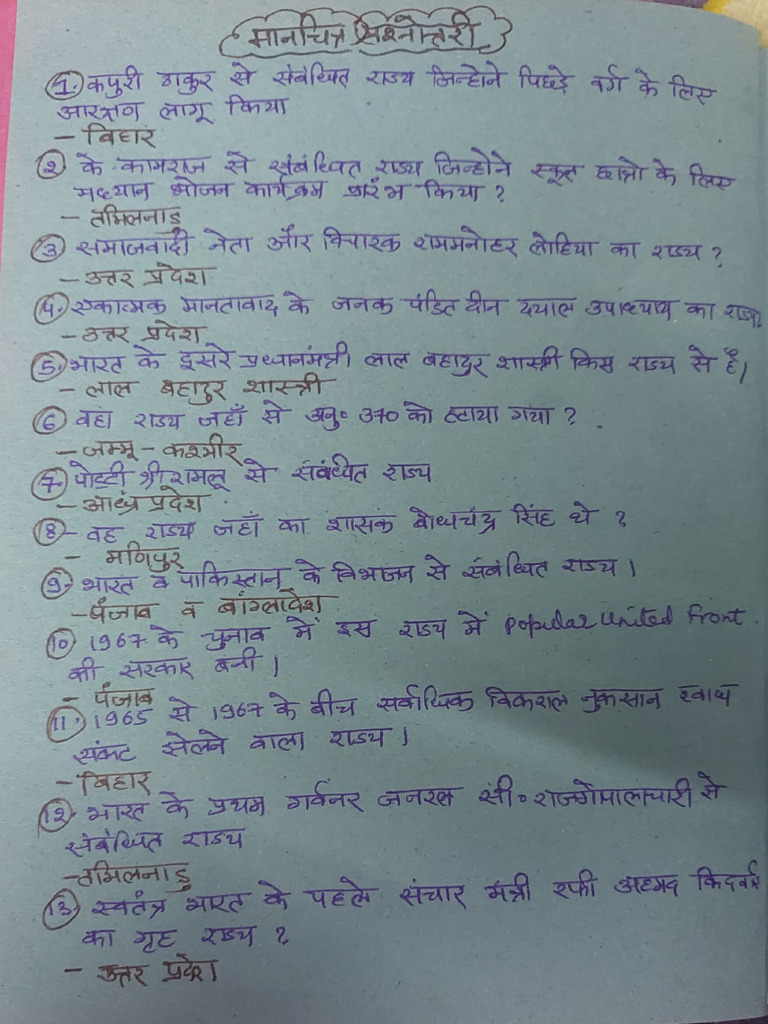 मानचित्र प्रश्नोत्तरी
1. कपुरी ठाकुर से संबंधित राज्य जिन्होने पिछड़े वर्ग के लिए
आरक्षण लागू किया
- बिहार
2 के कामराज से संबंधित राज्य जिन्होने स्कूल छात्रो के लिए
मध्यान भोजन कार्यक्रम प्रारंभ किया ?
- तमिलनाडु
3 समाजवादी नेता और विचारक राममनोहर लोहिया का राज्य ?
- उत्तर प्रदेश
4. एकात्मक मानतावाद के जनक पंडित दीन दयाल उपाध्याय का राज्य
- उत्तर प्रदेश
5 भारत के दूसरे प्रधानमंत्री लाल बहादुर शास्त्री किस राज्य से है।
- लाल बहादुर शास्त्री
6 वहा राज्य जहाँ से अनु॰ 370 को हटाया गया ?
- जम्मू - कश्मीर
7 पोट्टी श्री रामलू से संबंधित राज्य
- आध्रं प्रदेश
8 - वह राज्य जहाँ का शासक बोधचंद्र सिंह थे ?
- मणिपुर
9 - भारत व पाकिस्तान के विभाजन से संबंधित राज्य।
- पंजाब व बांग्लादेश
10 1967 के चुनाव में इस राज्य में Popular United Front.
की सरकार बनी।
- पंजाब
11. 1965 से 1967 के बीच सर्वाधिक विकराल नुकसान खाध
संकट झेलने वाला राज्य।
- बिहार
12 - भारत के प्रथम गर्वनर जनरल सी॰ राजगोपालाचारी से
संबंधित राज्य
- तमिलनाडु
13 - स्वतंत्र भारत के पहले संचार मंत्री रफी अहमद किदवई
का गृह राज्य ?
- उत्तर प्रदेश